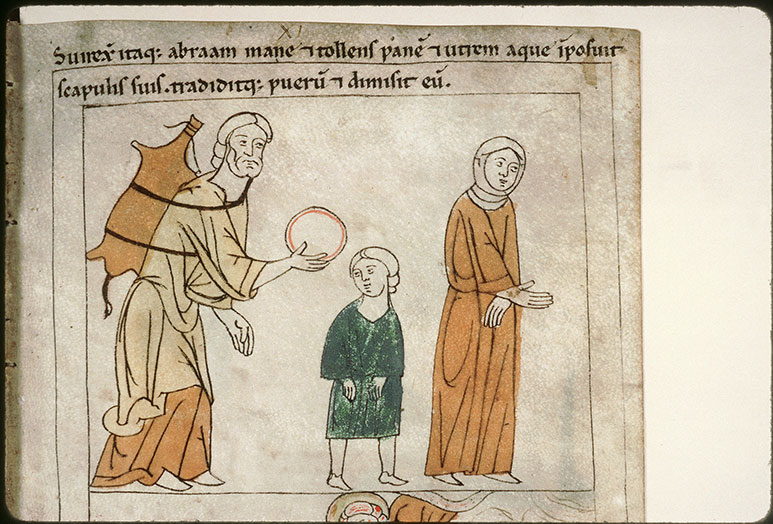 XI
Surrex̄ itaq; abraam mane ⁊ tollens panē ⁊ utrem aque īposuit
scapulis suis. tradiditq; puerū ⁊ dimisit eū.